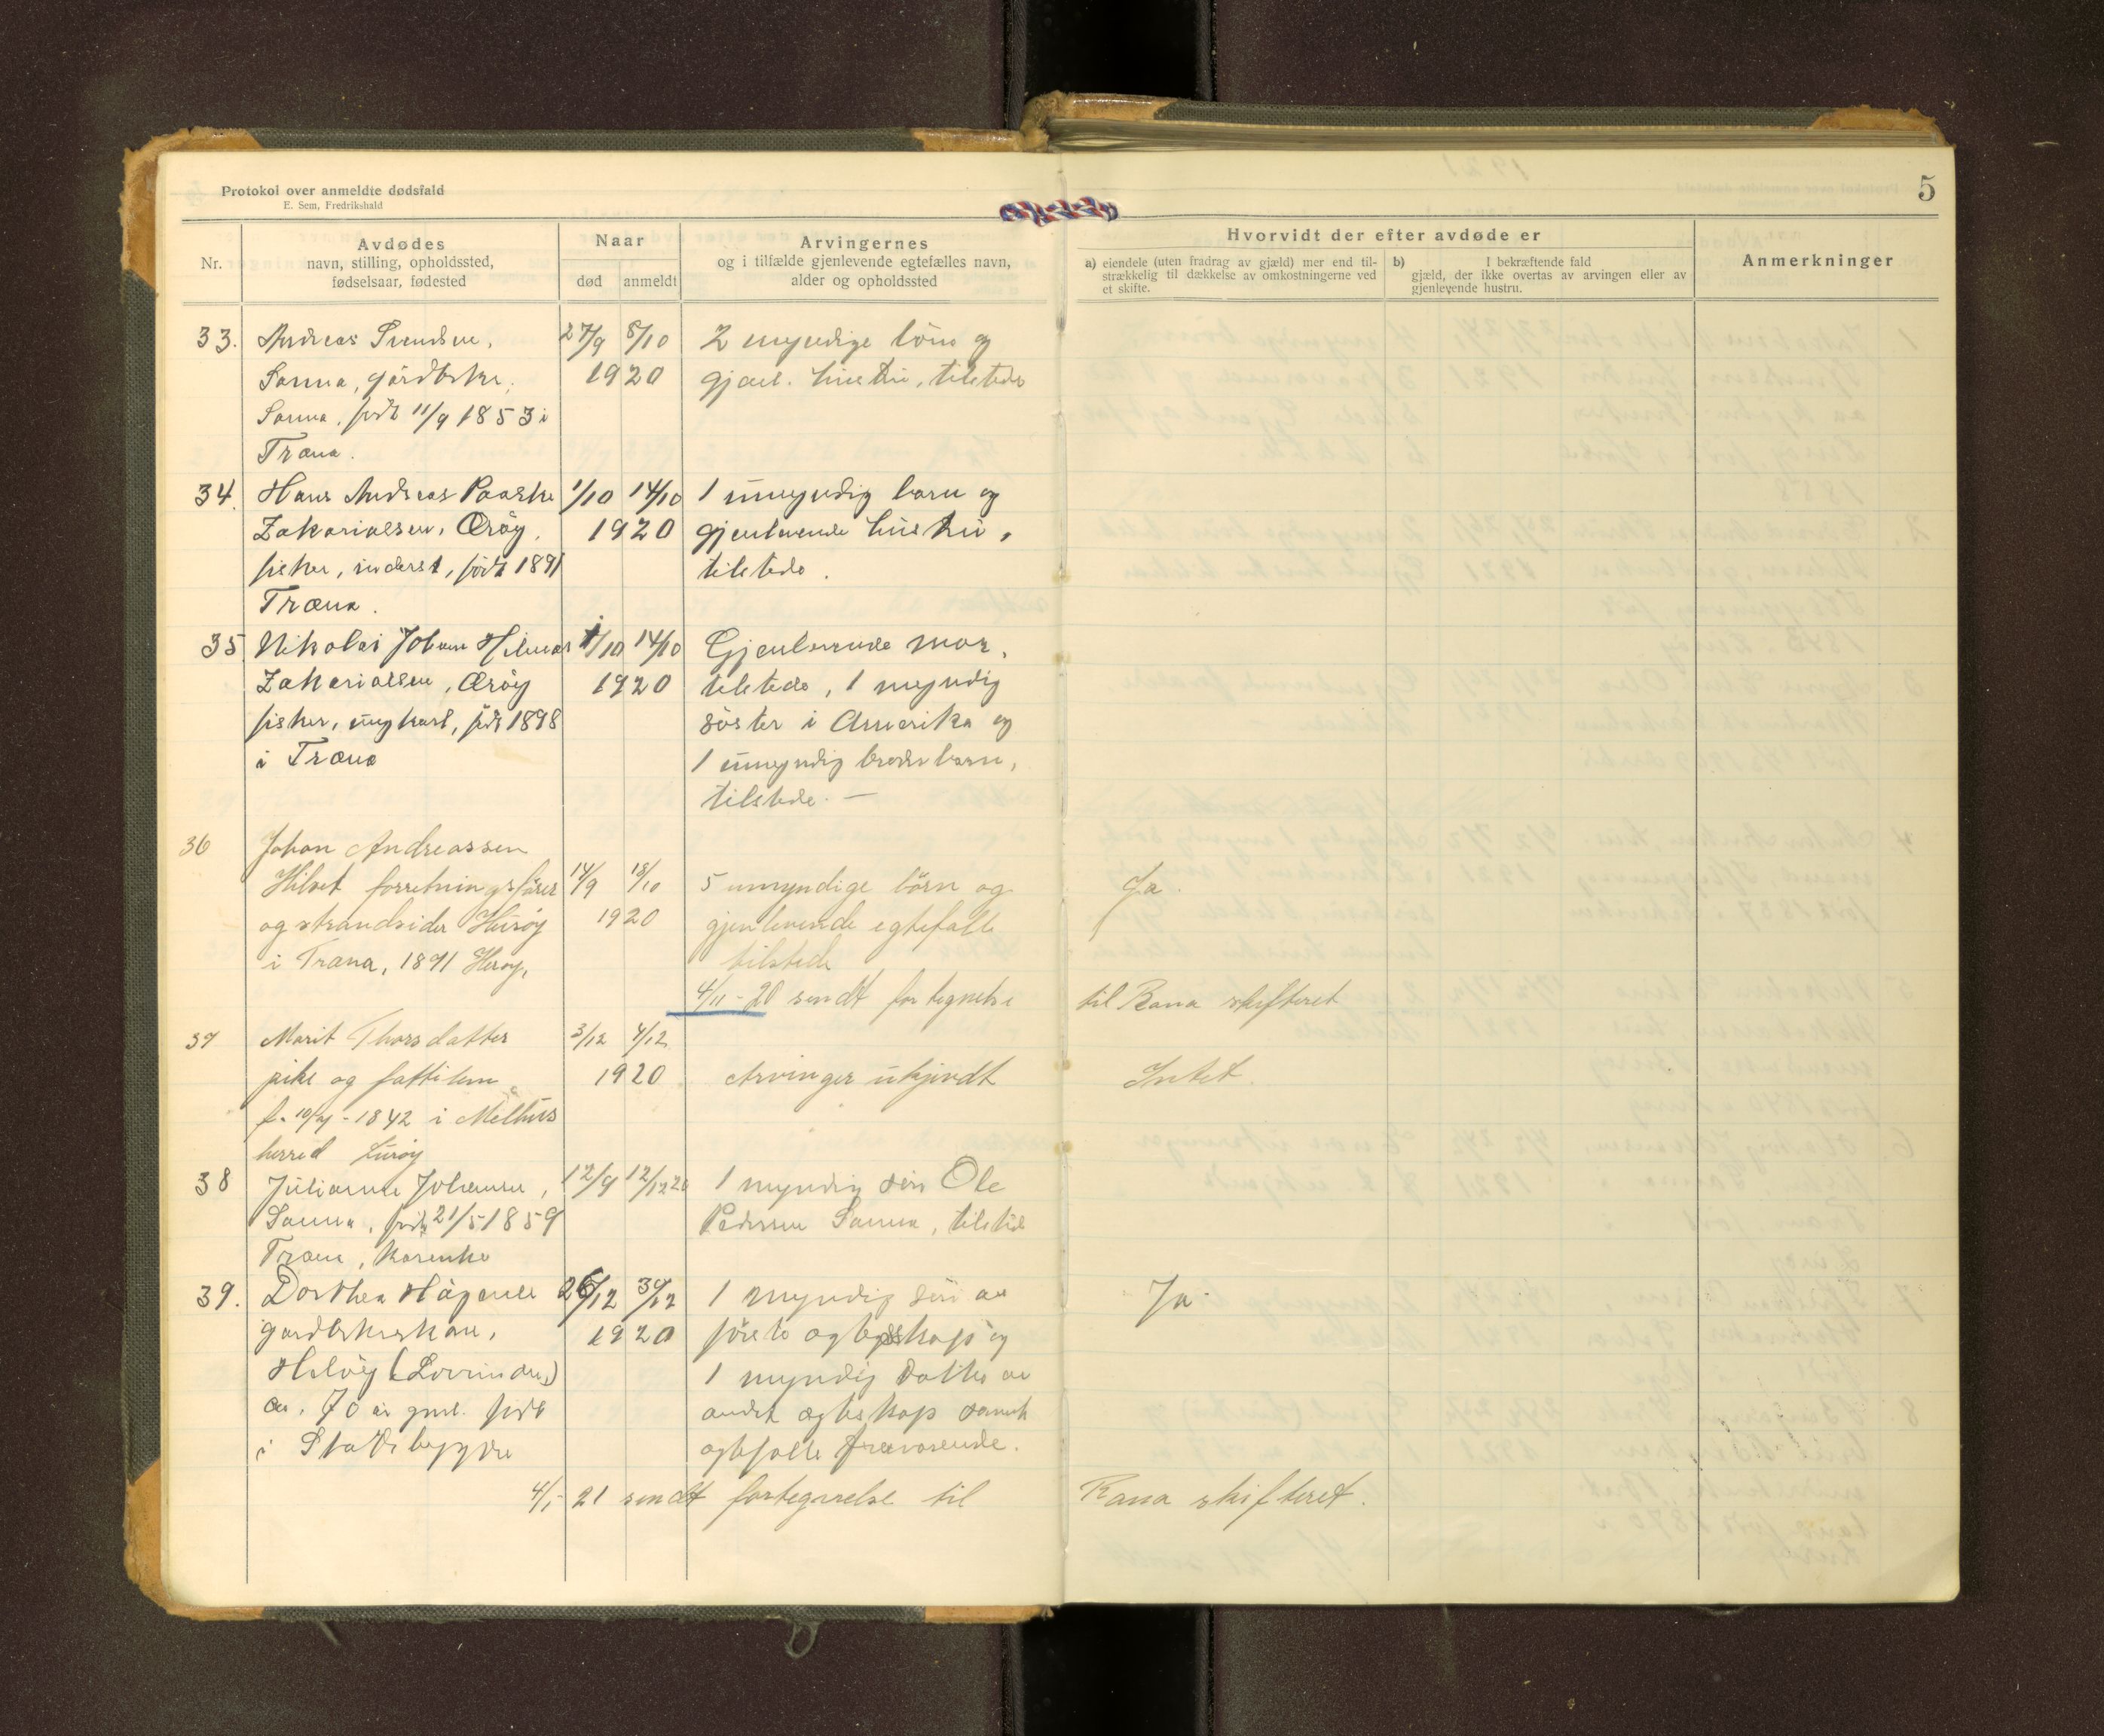 Protokol over anmeldte dødsfald
E. Sem, Fredrikshald
5
Nr.
Avdødes
navn, stilling, opholdssted,
fødselsaar, fødested
Naar
død
anmeldt
Arvingernes
og i tilfælde gjenlevende egtefælles navn,
alder og opholdssted
Hvorvidt der efter avdøde er
a) eiendele (uten fradrag av gjæld) mer end til-
strækkelig til dækkelse av omkostningerne ved
et skifte.
b) I bekræftende fald
gjæld, der ikke overtas av arvingen eller av
gjenlevende hustru.
Anmerkninger
33. Andreas Svendsen, 27/9 8/10 2 myndige börn og
Sanna, gårdbrker, 1920 gjenl. hustru, tilstede
Sanna, født 11/9 1853 i
Træna.
34. Hans Andreas Paaske 1/10 14/10 1 umyndig barn og
Zakariassen, 1920 gjenlevende hustru,
fisker, inderst, født 1891 tilstede.
Træna.
35 Nikolai Johan Hilmar 1/10 14/10 Gjenlevende mor,
Zakariassen, 1920 tilstede, 1 myndig
fisker, ungkarl, født 1898 söster i Amerika og
i Træna 1 umyndig brorbarn,
tilstede. —
36 Johan Andreassen
forretningsförer 14/9 18/10 5 umyndige börn og Ja.
og strandsider Husöy 1920 gjenlevende egtefalle
i Træna, 1891 Heröy, tilstede
4/11-20 sendt fortegnelse til Rana skifteret
37 Marit Thorsdatter 3/12 4/12
pike og fattilem 1920 Arvinger ukjendt Intet.
f. 10/4-1842 i Melhus
herred Luröy
38 Julianna Johansen, 12/9 12/12 20 1 myndig sön Ole
Sanna, født 21/5 1859 Pedersen Sanna, tilsted
Træna,
39. Dorthea Hågensen 26/12 30/12 1 myndig sön av Ja.
gårdbrkerkone, 1920 förste ægteskap og
Selöy (Lovunden) 1 myndig datter av
ca. 70 år gml. født andet ægteskap samt
i Stadsbygden egtefælle fraværende.
4/1-21 sendt fortegnelse til Rana skifteret.